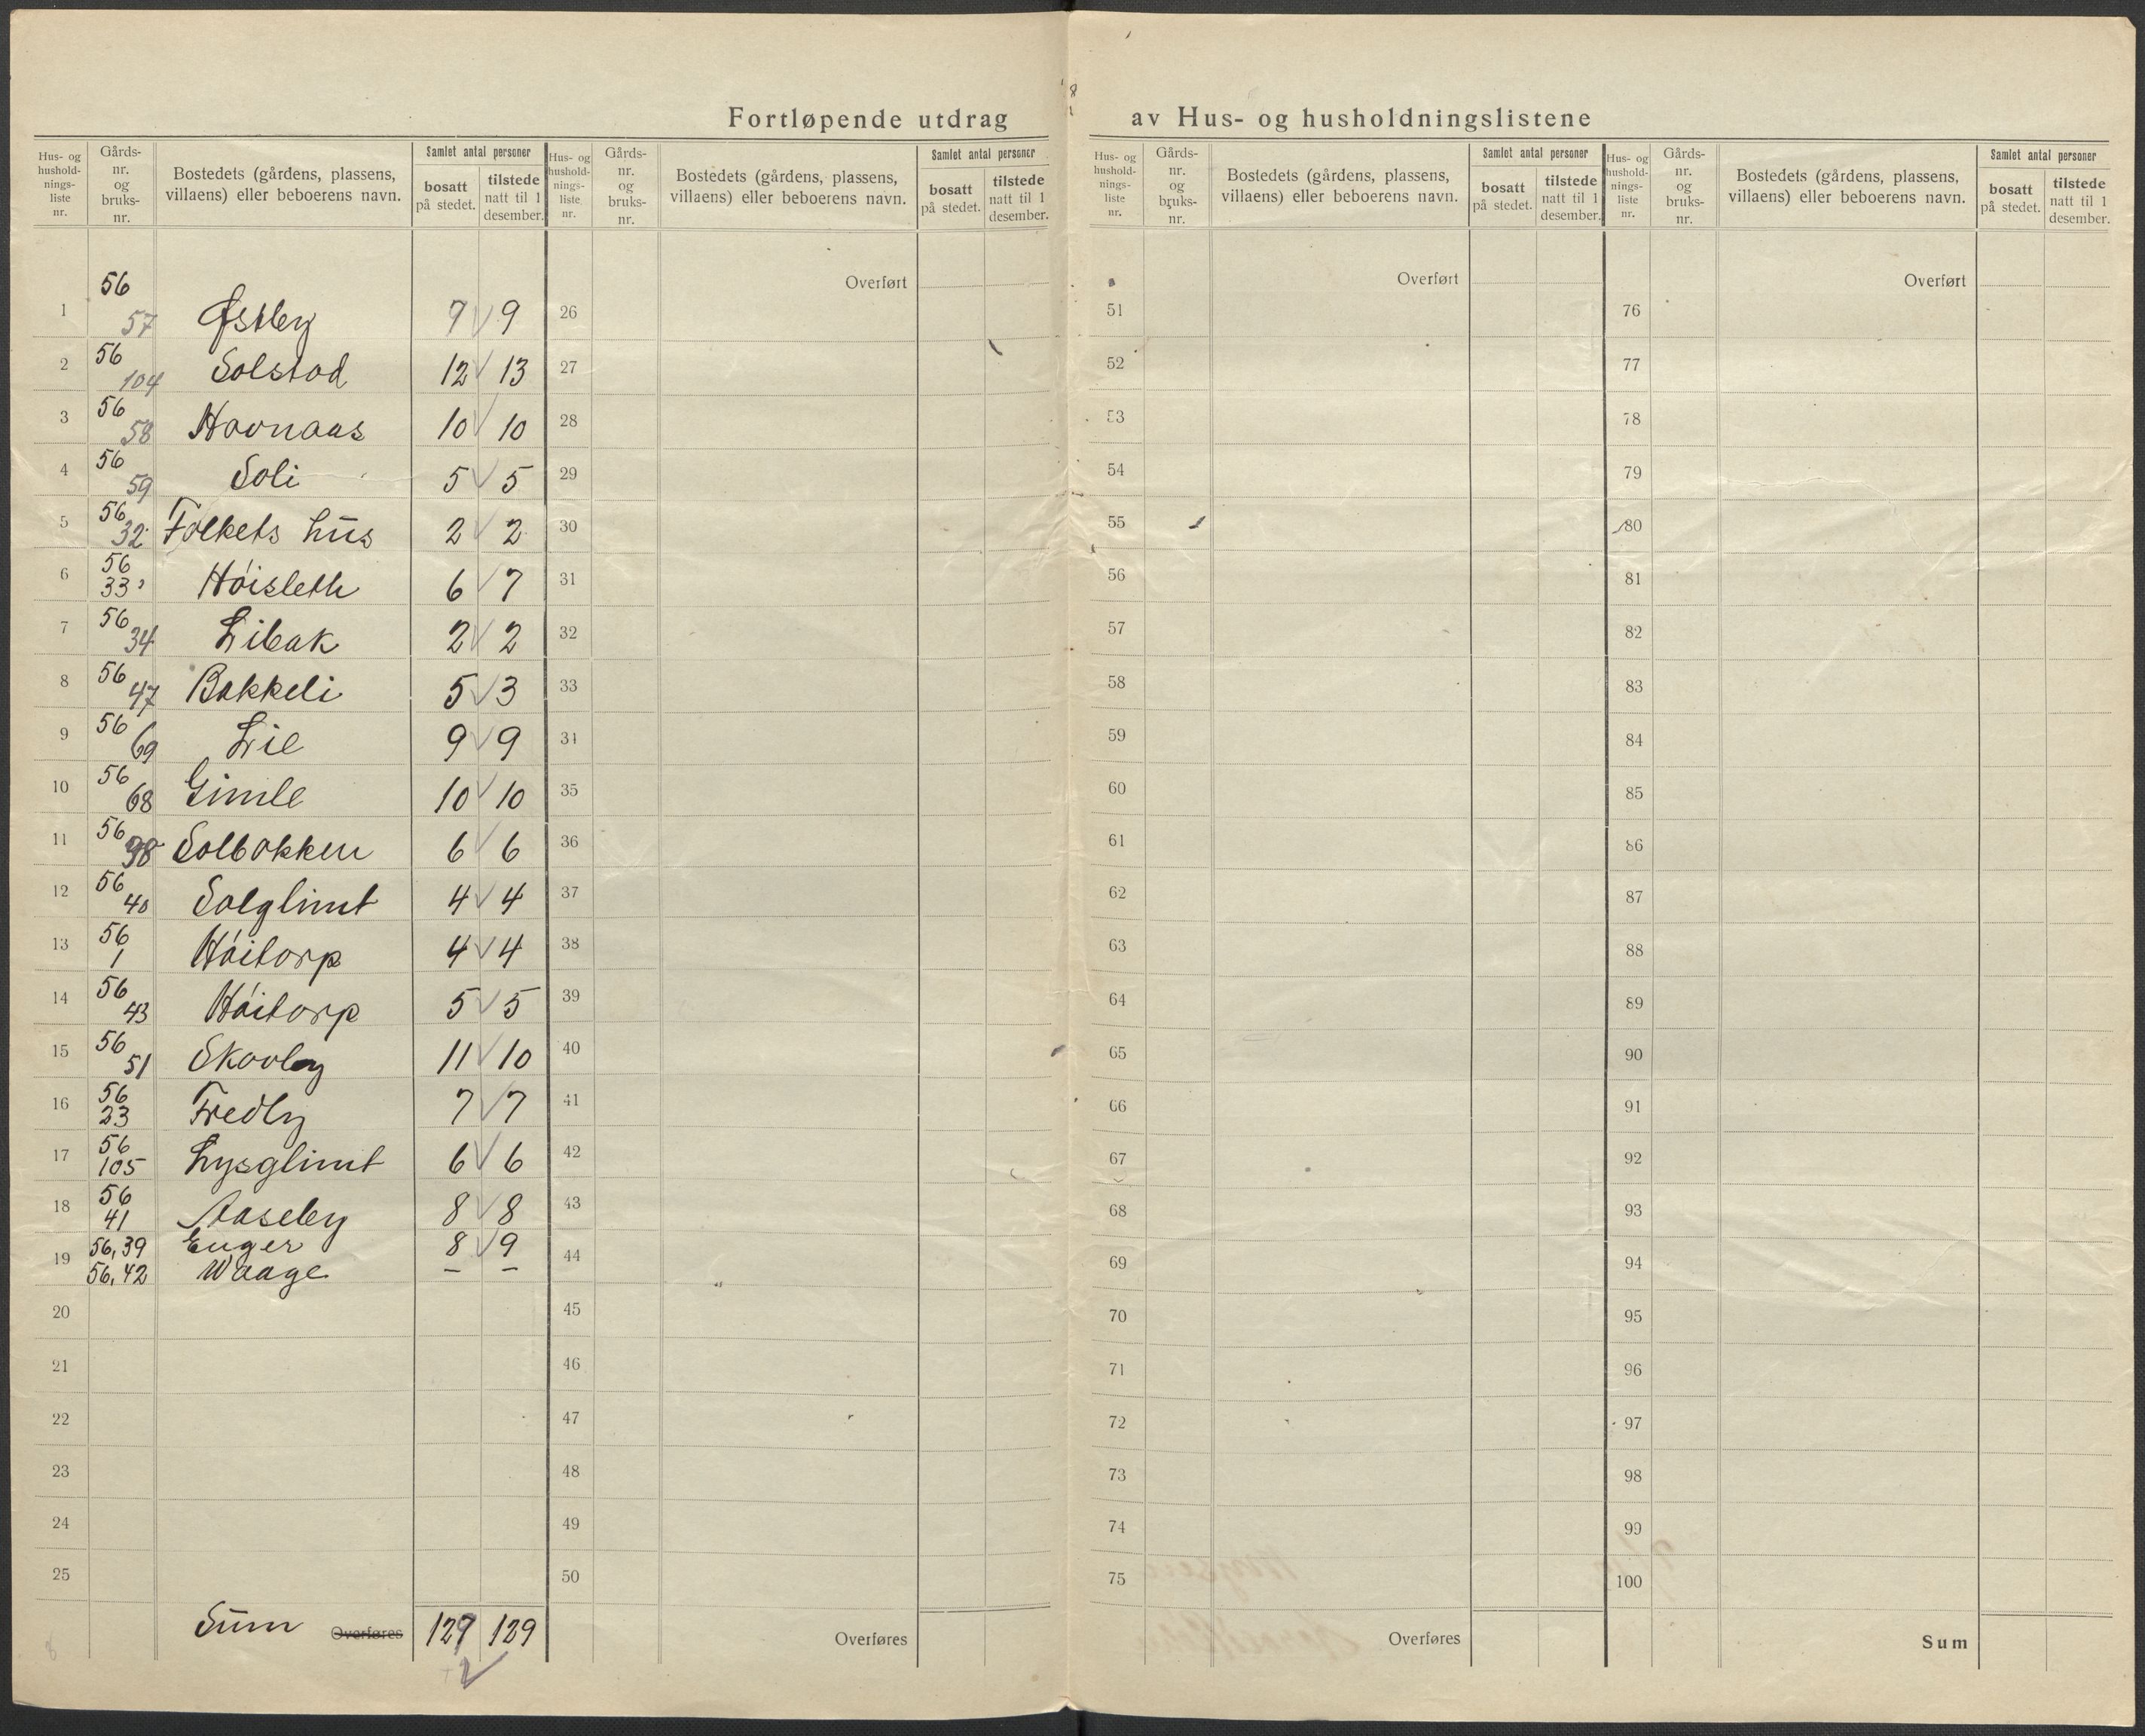 Fortløpende utdrag av Hus- og husholdningslistene
Hus- og hushold-nings-liste nr. Gårds-nr. og bruks-nr. Bostedets (gårdens, plassens, villaens) eller beboerens navn. Samlet antal personer bosatt på stedet. tilstede natt til 1 desember.
Hus- og hushold-nings-liste nr. Gårds-nr. og bruks-nr. Bostedets (gårdens, plassens, villaens) eller beboerens navn. Samlet antal personer bosatt på stedet. tilstede natt til 1 desember.
Hus- og hushold-nings-liste nr. Gårds-nr. og bruks-nr. Bostedets (gårdens, plassens, villaens) eller beboerens navn. Samlet antal personer bosatt på stedet. tilstede natt til 1 desember.
Hus- og hushold-nings-liste nr. Gårds-nr. og bruks-nr. Bostedets (gårdens, plassens, villaens) eller beboerens navn. Samlet antal personer bosatt på stedet. tilstede natt til 1 desember.
Overført Overført Overført
1 56 57 Østby 9 9 26 51 76
2 56 104 Solstad 12 13 27 52 77
3 56 58 Havnaas 10 10 28 53 78
4 56 59 Soli 5 5 29 54 79
5 56 32 Folkets hus 2 2 30 55 80
6 56 33 Höisleth 6 7 31 56 81
7 56 34 Libak 2 2 32 57 82
8 56 47 Bakkeli 5 3 33 58 83
9 56 69 Lie 9 9 34 59 84
10 56 68 Gimle 10 10 35 60 85
11 56 98 Solbakken 6 6 36 61 86
12 56 40 Solglimt 4 4 37 62 87
13 56 1 Höitorp 4 4 38 63 88
14 56 43 Höitorp 5 5 39 64 89
15 56 51 Skovly 11 10 40 65 90
16 56 23 Fredly 7 7 41 66 91
17 56 105 Lysglimt 6 6 42 67 92
18 56 41 Aaseby 8 8 43 68 93
19 56, 39 Enger 8 9 44 69 94
56, 42 Waage – –
20 45 70 95
21 46 71 96
22 47 72 97
23 48 73 98
24 49 74 99
25 50 75 100
Sum Overføres 129 129 Overføres Overføres Sum